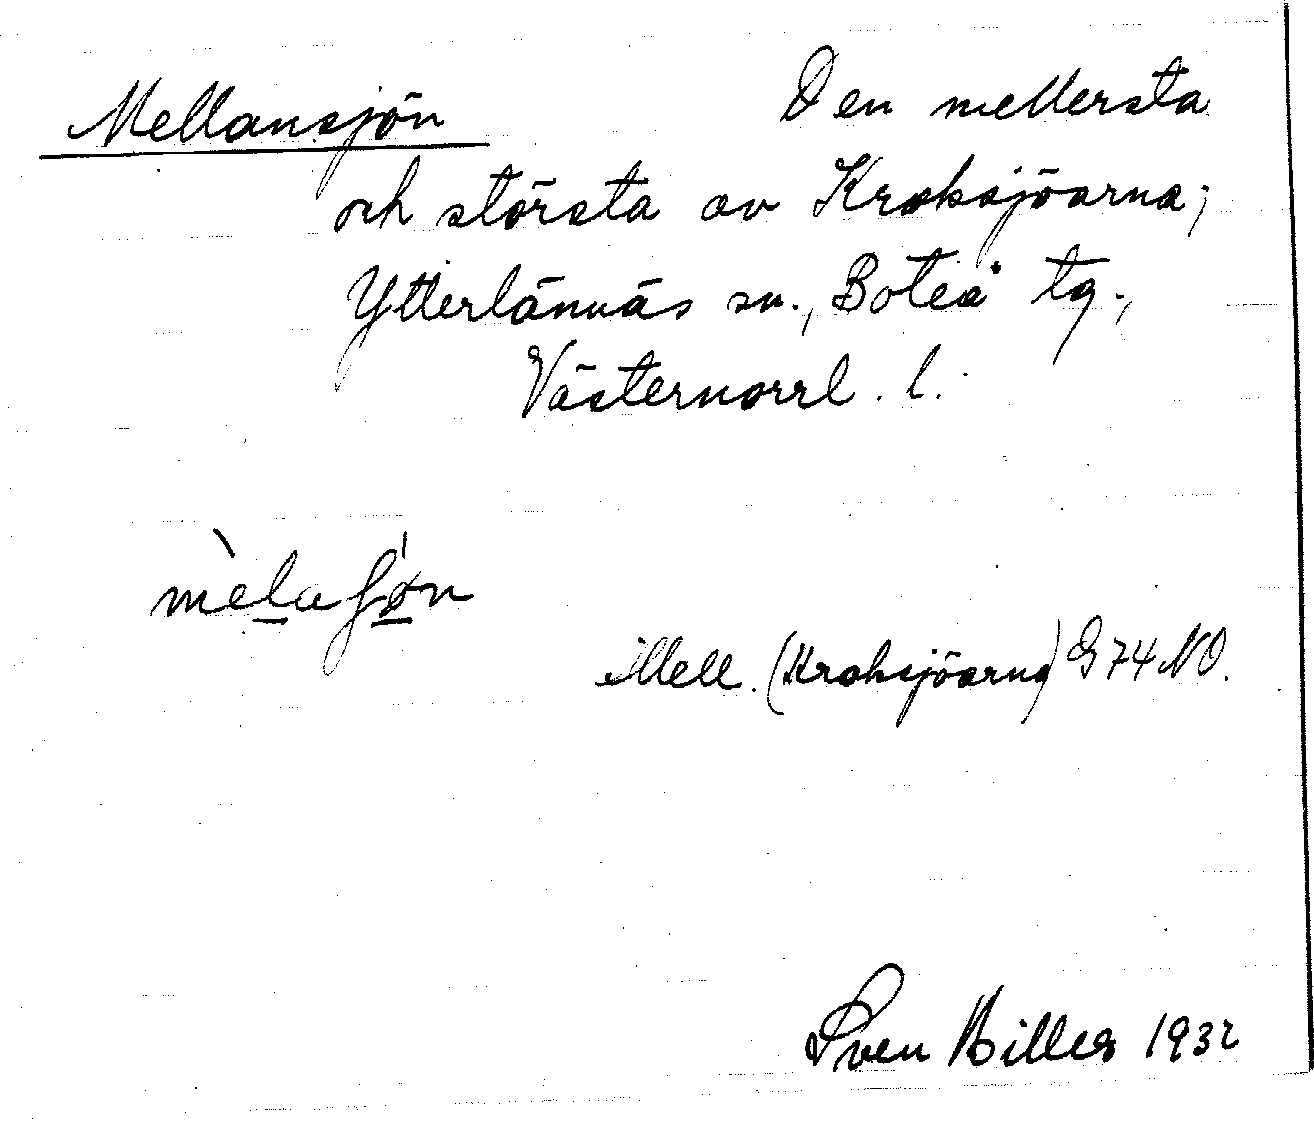 Mellansjön Den mellersta
och största av Kroksjöarna;
Ytterlännäs sn., Boteå tg.,
Västernorrl. l.
mèlaʃøn
Mell. (Kroksjöarna) G 74 NO.
Sven Billes 1932